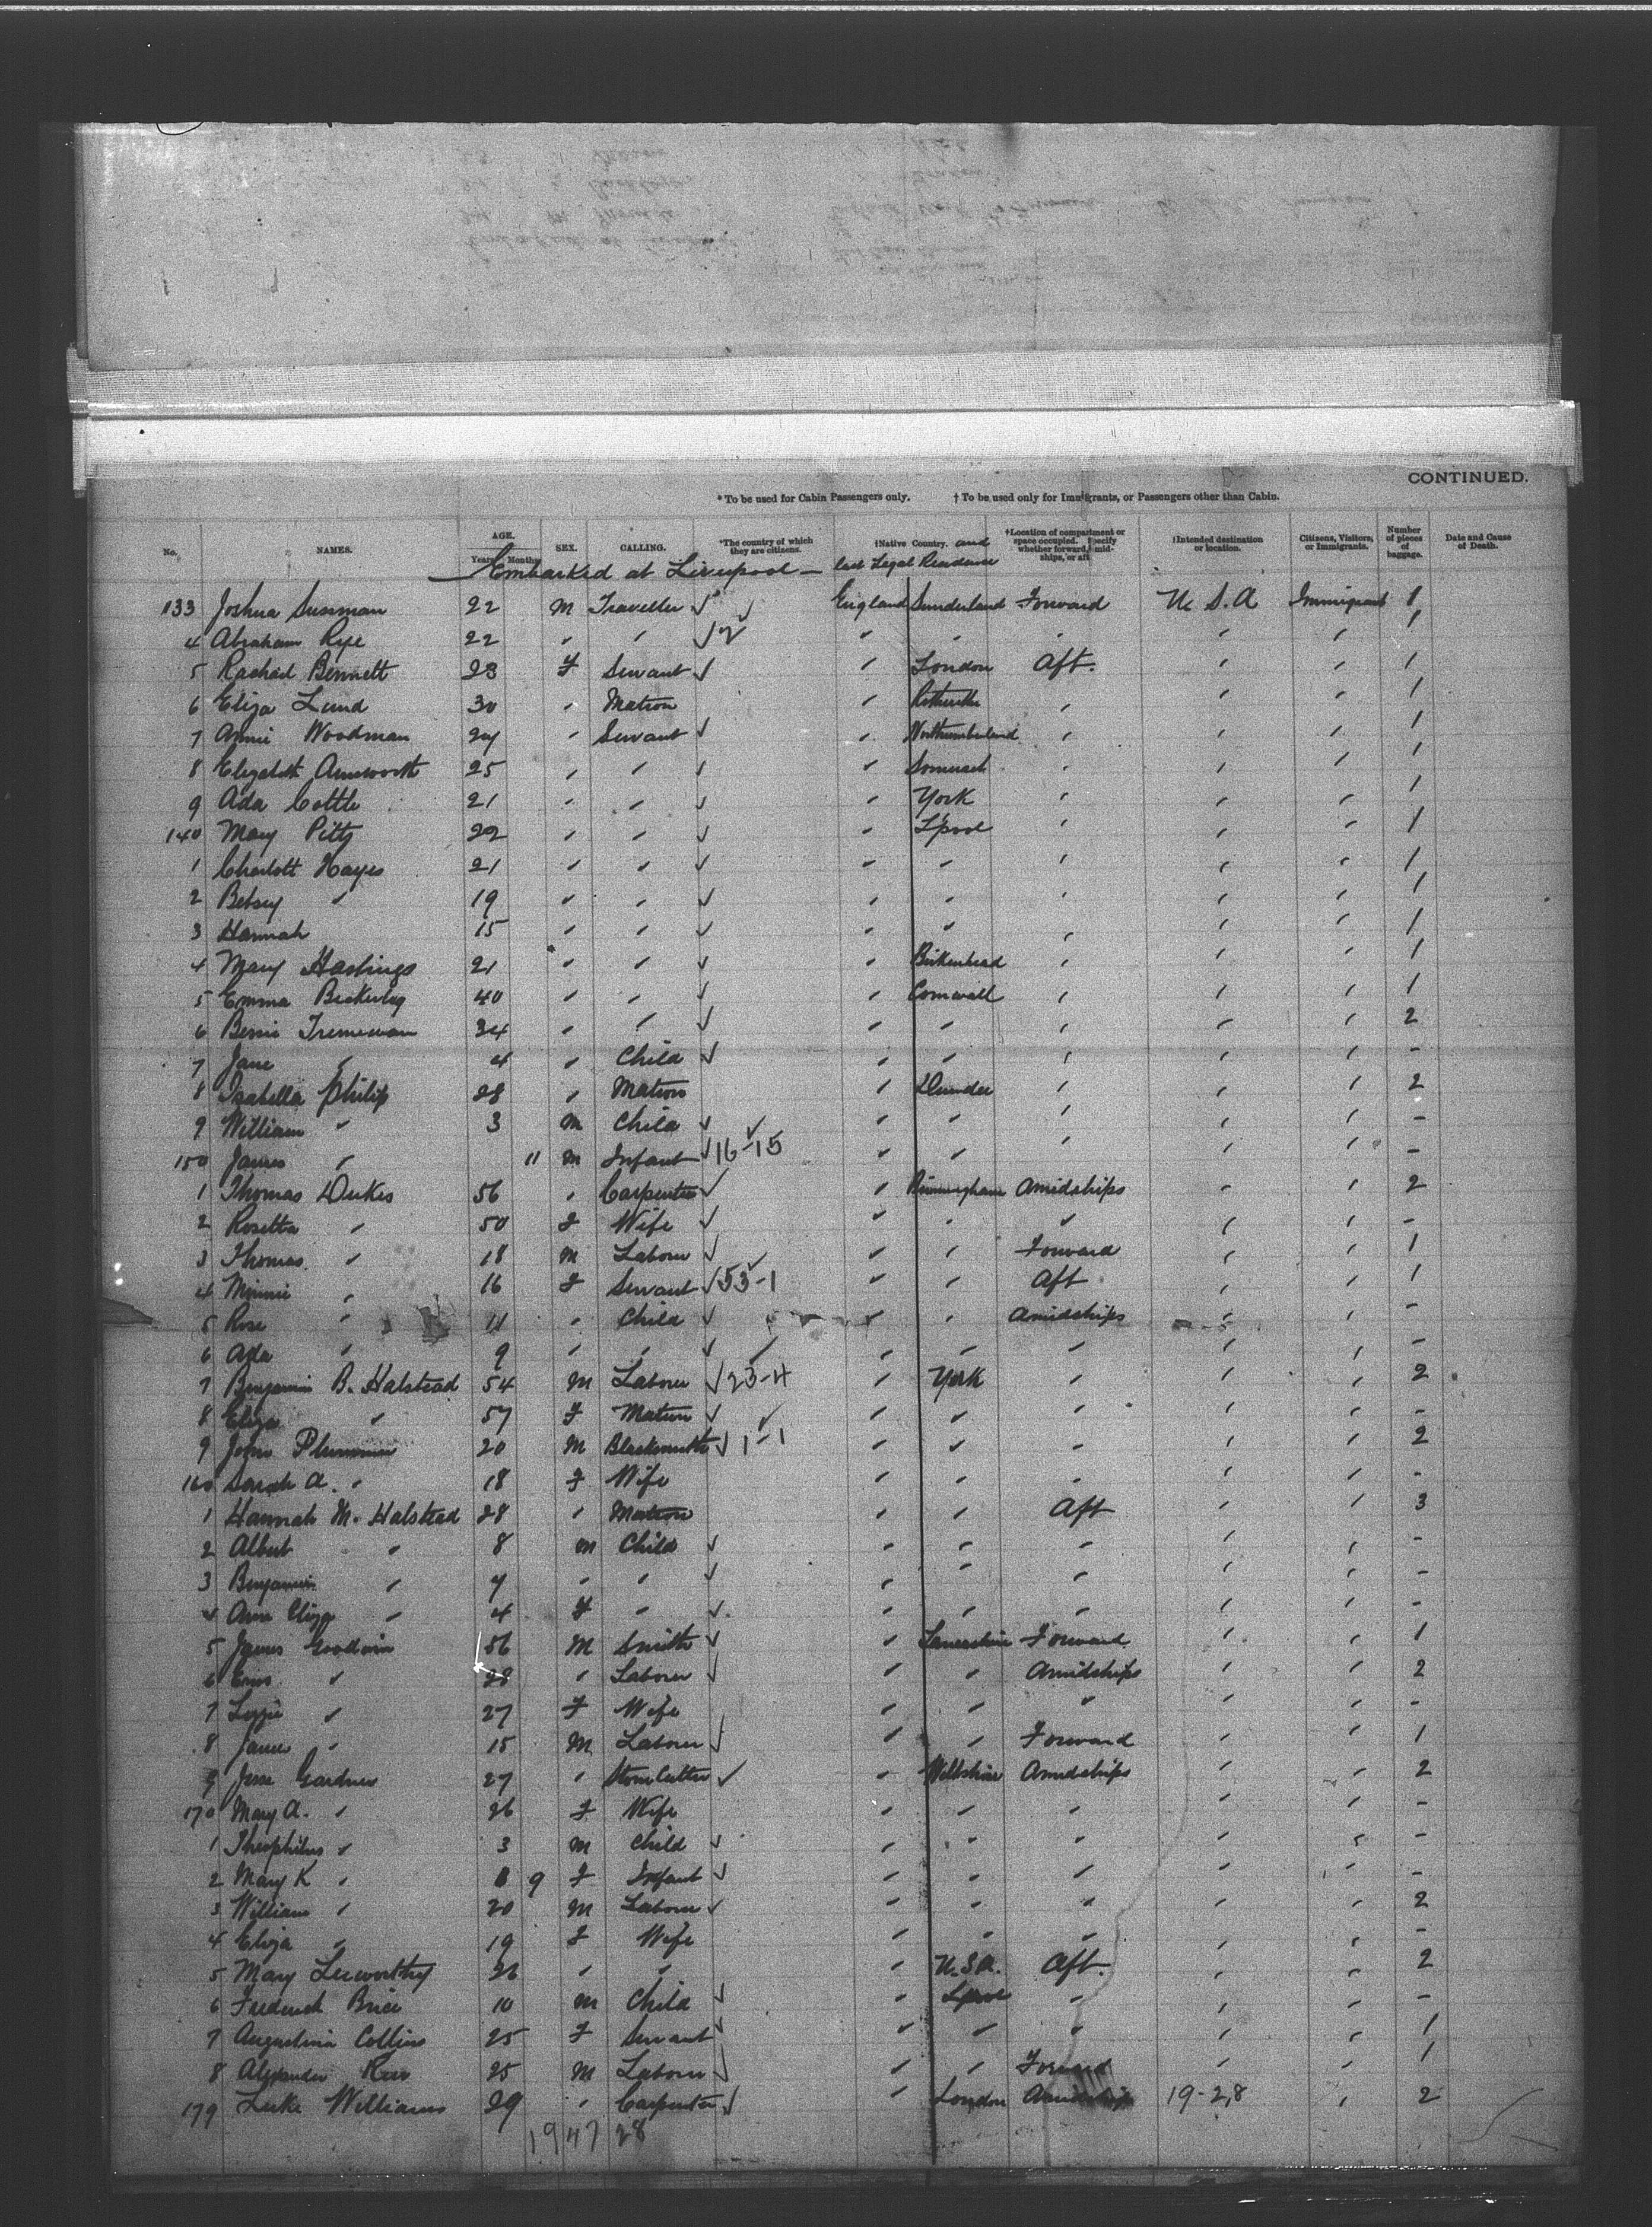 CONTINUED.
* To be used for Cabin Passengers only. † To be used only for Immigrants, or Passengers other than Cabin.
No. NAMES. AGE. Years Months SEX. CALLING. *The country of which they are citizens. †Native Country. and last Legal Residence †Location of compartment or space occupied. Specify whether forward, midships, or aft †Intended destination or location. Citizens, Visitors, or Immigrants. Number of pieces of baggage. Date and Cause of Death.
Embarked at Liverpool
133 Joshua Sussman 22 M Traveller ✓ ✓ England Sunderland Forward U.S.A Immigrant 1
4 Abraham 22 " " ✓ 2 " " " " " 1
5 Rachael Bennett 23 F Servant ✓ " London Aft. " " 1
6 Eliza Lund 30 " Matron " " " " 1
7 Annie Woodman 24 " Servant ✓ " Northumberland " " " 1
8 Elizabeth 25 " " ✓ " Somerset " " " 1
9 Ada Cottle 21 " " ✓ " York " " " 1
140 Mary Pitts 22 " " ✓ " L'pool " " " 1
1 Charlott Hayes 21 " " ✓ " " " " " 1
2 Betsey " 19 " " ✓ " " " " " 1
3 Hannah 15 " " ✓ " " " " " 1
4 Mary Hastings 21 " " ✓ " Birkenhead " " " 1
5 Emma 40 " " ✓ " Cornwall " " " 1
6 Bessie Tremewan 34 " " ✓ " " " " " 2
7 Jane " 4 " Child ✓ " " " " " -
8 Isabella Philip 28 " Matron " Dundee " " " 2
9 William " 3 M Child ✓ " " " " " -
150 James " 11 M Infant ✓ 16-15 " " " " " -
1 Thomas Dukes 56 " Carpenter ✓ " Birmingham Amidships " " 2
2 Rosetta " 50 F Wife ✓ " " " " " -
3 Thomas " 18 M Laborer ✓ " " Forward " " 1
4 Minnie " 16 F Servant ✓ 53-1 " " Aft " " 1
5 Rose " 11 " Child ✓ " " Amidships " " -
6 Ada " 9 " " ✓ " " " " " -
7 Benjamin B. Halstead 54 M Laborer ✓ 23-4 " York " " " 2
8 Eliza " 57 F Matron ✓ " " " " " -
9 John Plummer 20 M Blacksmith ✓ 1-1 " " " " " 2
160 Sarah A. " 18 F Wife " " " " " -
1 Hannah M. Halstead 28 " Matron " " Aft " " 3
2 Albert " 8 M Child ✓ " " " " " -
3 Benjamin " 7 " " ✓ " " " " " -
4 Ann Eliza " 4 F " ✓ " " " " " -
5 James Goodwin 56 M Smith ✓ " Lancashire Forward " " 1
6 " 28 " Laborer ✓ " " Amidships " " 2
7 Lizzie " 27 F Wife " " " " " -
8 James " 15 M Laborer ✓ " " Forward " " 1
9 Jesse Gardner 27 " Stone Cutter ✓ " Wiltshire Amidships " " 2
170 Mary A. " 26 F Wife " " " " " -
1 Theophilus " 3 M Child ✓ " " " " " -
2 Mary K " 9 F Infant ✓ " " " " " -
3 William " 20 M Laborer ✓ " " " " " 2
4 Eliza " 19 F Wife " " " " " -
5 Mary Leeworthy 26 " " " U.S.A. Aft. " " 2
6 Frederick Brice 10 M Child ✓ " L'pool " " " -
7 Augustina Collins 25 F Servant ✓ " " " " " 1
8 Alexander 25 M Laborer ✓ " " Forward " " 1
179 Luke Williams 29 " Carpenter ✓ " London Amidships 19-28 " 2
1947 28